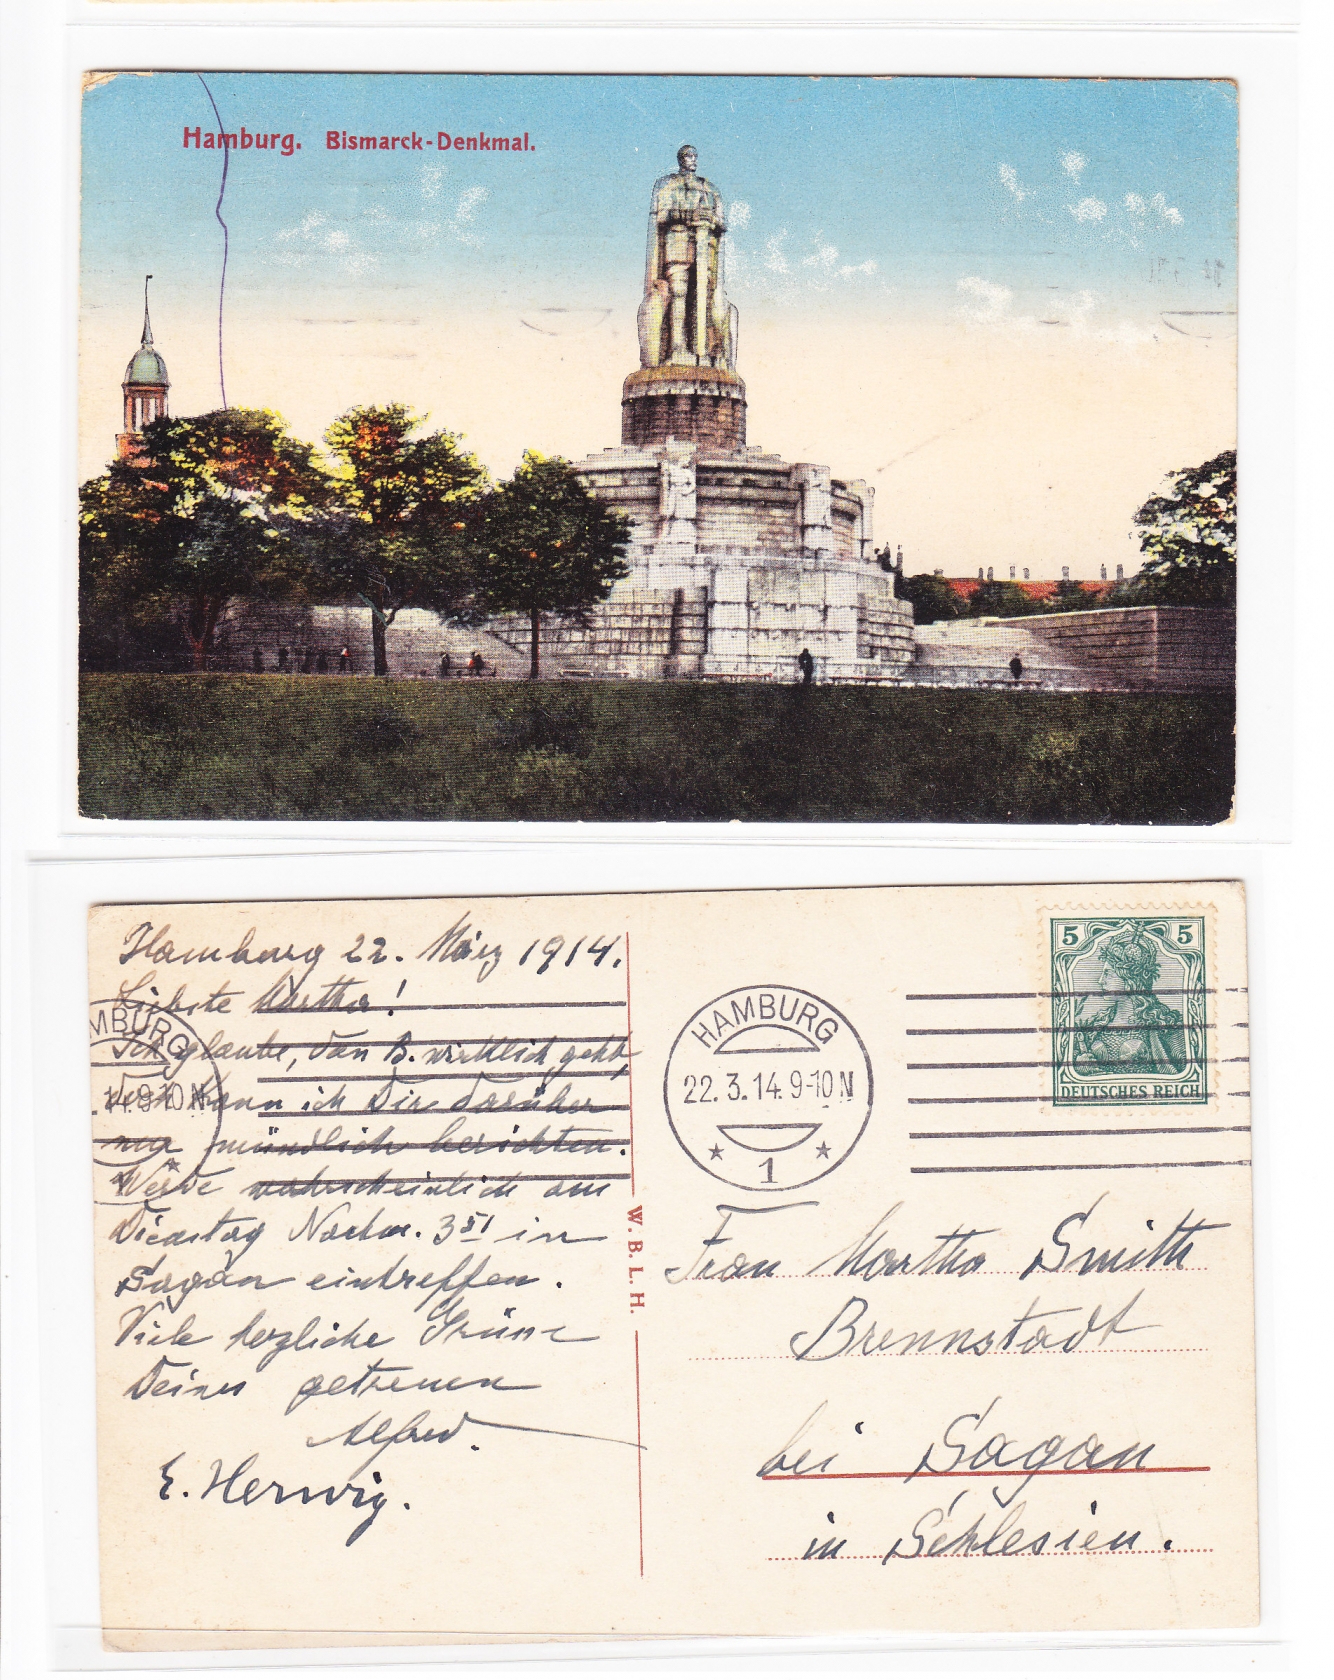 Hamburg. Bismarck-Denkmal.
Hamburg 22. März 1914.
Liebste Martha!
Ich glaube, dan B. wirklich geht,
doch kann ich Dir darüber
nur mündlich berichten.
Werde wahrscheinlich am
Dienstag Nachm. 3 51 in
Sagan eintreffen.
Viele herzliche Grüsse
Deines getreuen
Alfred.
E. Herwig.
MBURG
.14.9-10N
W. B. L. H.
HAMBURG
22.3.14.9-10N
* 1 *
5 5
DEUTSCHES REICH
Frau Martha Smith
Brennstadt
bei Sagan
in Schlesien.